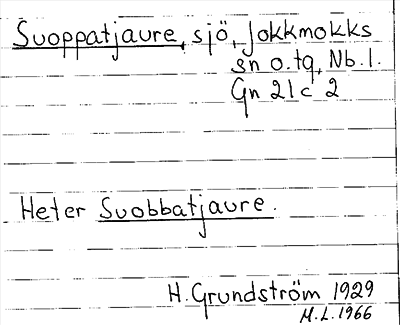 Suoppatjaure, sjö, Jokkmokks
sn o. tg, Nb. l.
Gn 21c 2
Heter Suobbatjaure.
H. Grundström 1929
M.L. 1966